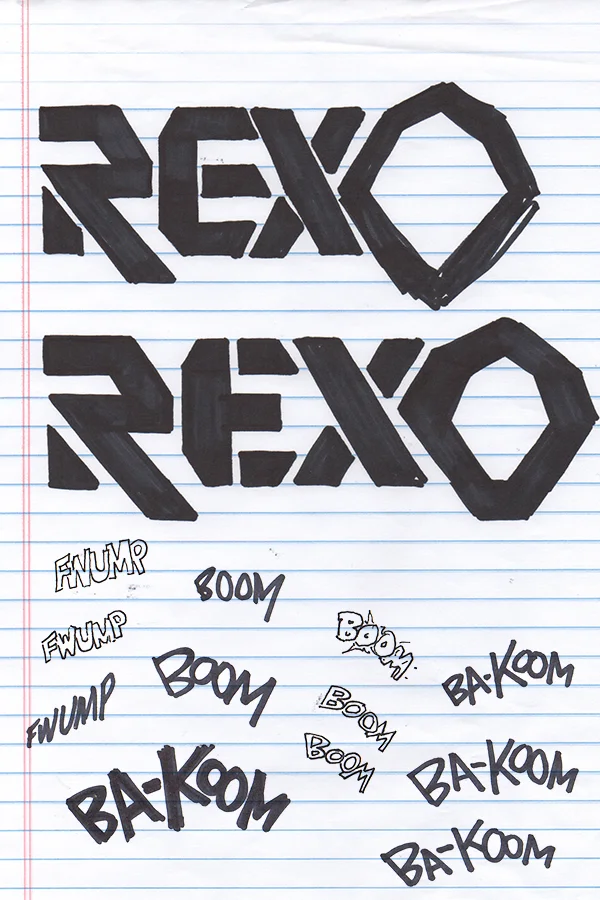 REXO
REXO
FWUMP
BOOM
FWUMP
BOOM
BOOM
BA-KOOM
FWUMP
BOOM
BOOM
BA-KOOM
BA-KOOM
BA-KOOM